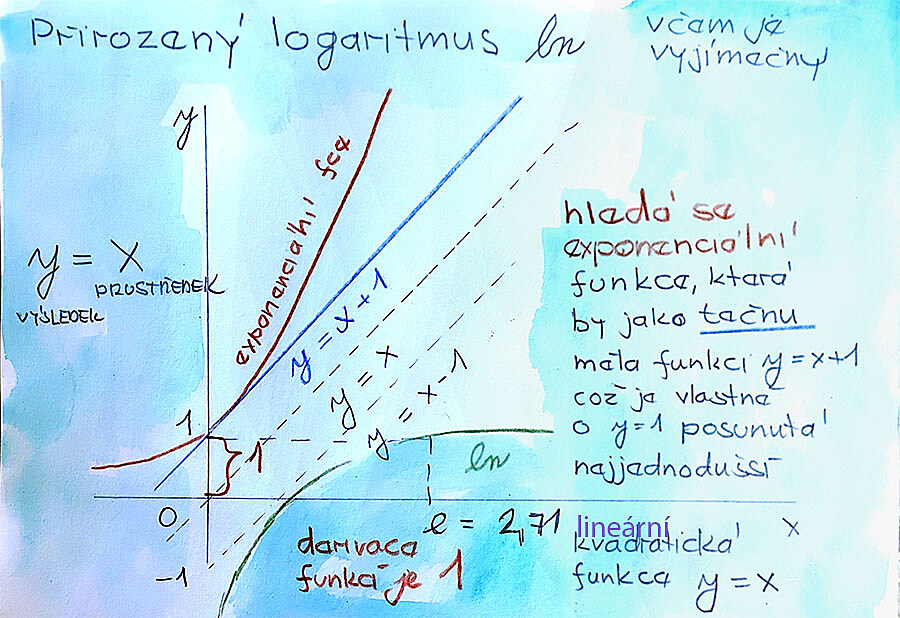 Přirozený logaritmus ln
v čem je
vyjímečný
y
exponenciální fce
y = x
PROSTŘEDEK
VÝSLEDEK
y = x + 1
y = x
y = x - 1
hledá se
exponenciální
funkce, která
by jako tečnu
měla funkci y = x+1
což je vlastně
o y=1 posunutá
nejjednodušší
lineární
kvadratická
funkce y = x
1
1
ln
0
e = 2,71
x
-1
derivace
funkcí je 1